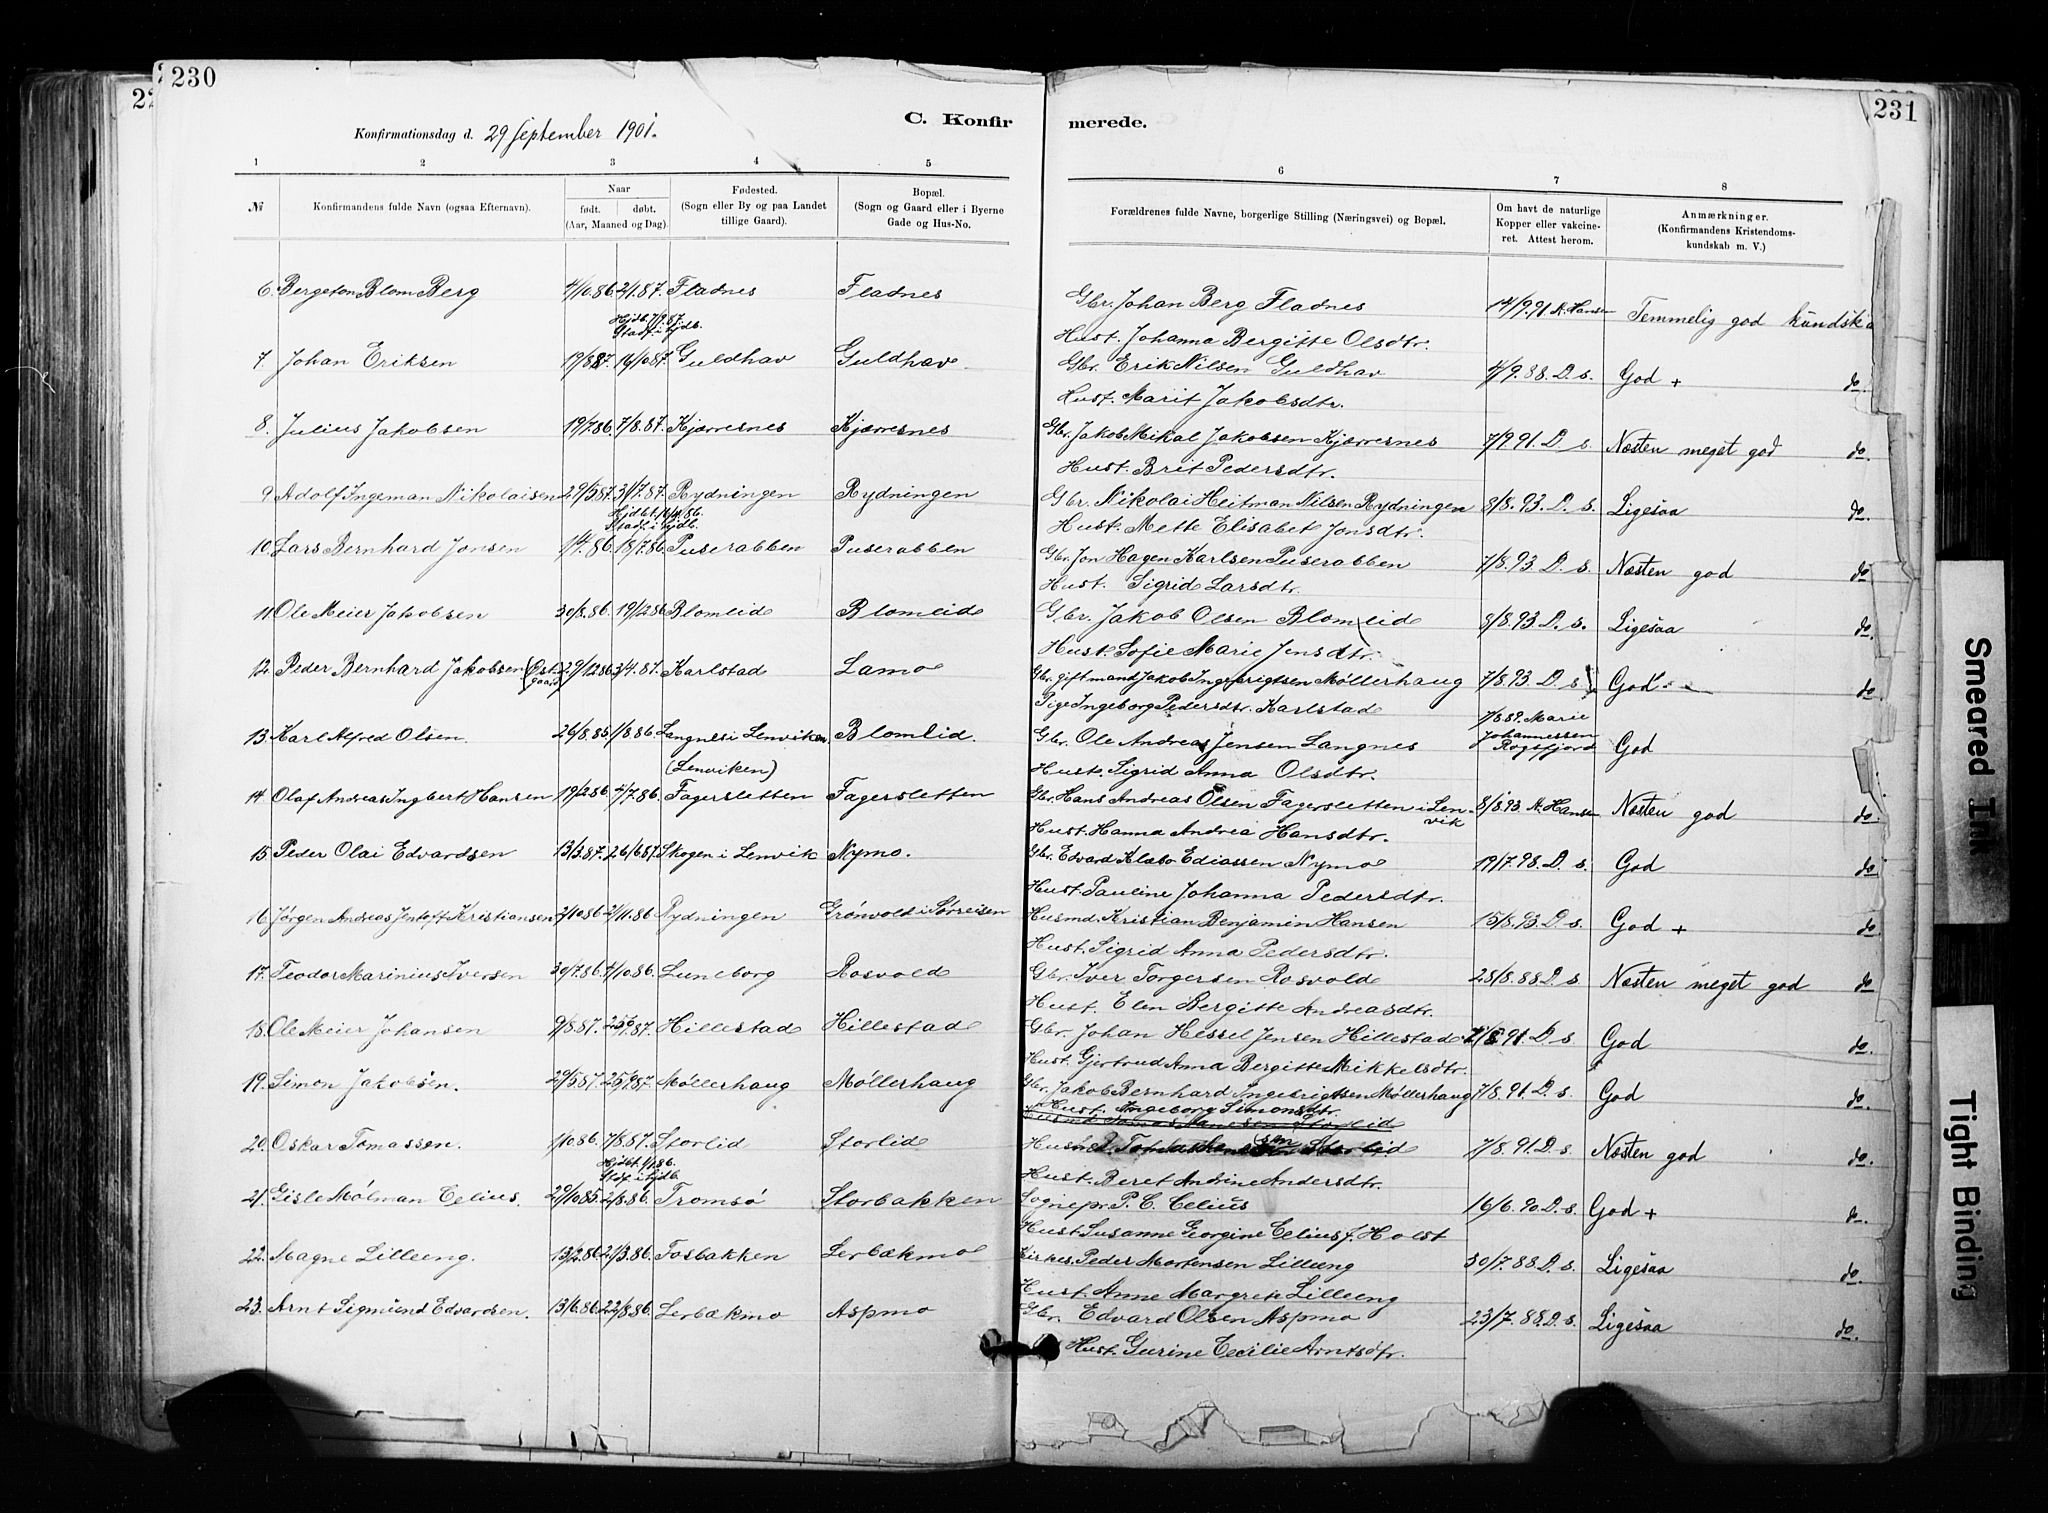 230
231
22
C. Konfir merede.
Konfirmationsdag d. 29 September 1901.
1 2 3 4 5 6 7 8
№
Konfirmandens fulde Navn (ogsaa Efternavn).
Naar
født. døbt.
(Aar, Maaned og Dag).
Fødested.
(Sogn eller By og paa Landet
tillige Gaard).
Bopæl.
(Sogn og Gaard eller i Byerne
Gade og Hus-No.
Forældrenes fulde Navne, borgerlige Stilling (Næringsvei) og Bopæl.
Om havt de naturlige
Kopper eller vakcine-
ret. Attest herom.
Anmærkninger.
(Konfirmandens Kristendoms-
kundskab m. V.)
6. Bergeton Blom Berg 4/10.86 2/1.87. Fladnes Fladnes Gbr. Johan Berg Fladnes 14/9.91 A. Hansen Temmelig god kundska
Hust. Johanna Bergitte Olsdtr.
Hjdbt. 7/9.87.
Stadf. i Hjdb.
7. Johan Eriksen 19/8.87. 16/10.87. Guldhav Guldhav Gbr. Erik Nilsen Guldhav 4/9.88. D. s. God + do.
Hust. Marit Jakobsdtr.
8. Julius Jakobsen 19/7.86. 7/8.87. Kjærresnes Kjærresnes Gbr. Jakob Mikal Jakobsen Kjærresnes 7/9.91. D. s. Næsten meget god do.
Hust. Brit Pedersdtr.
9. Adolf Ingeman Nikolaisen 29/5.87. 31/7.87. Rydningen Rydningen Gbr. Nikolai Heitman Nilsen Rydningen 8/8.93. D. s. Ligesaa do.
Hust. Mette Elisabet Jonsdtr.
Stadf. i Hjdb.
10. Lars Bernhard Jonsen 18/7.86. Puserabben Puserabben Gbr. Jon Hagen Karlsen Puserabben 7/8.93. D. s. Næsten god do.
Hust. Sigrid Larsdtr.
11. Ole Meier Jakobsen 30/8.86. 19/12.86 Blomlid Blomlid Gbr. Jakob Olsen Blomlid 8/8.93. D. s. Ligesaa do.
Hust. Sofie Marie Jensdtr.
12. Peder Bernhard Jakobsen (Øst-
gaard) 29/12.86 3/4.87. Karlstad Lamo Gbr. gift mand Jakob Ingebrigtsen Møllerhaug 7/8.93. D. s. God do
Pige Ingeborg Pedersdtr. Karlstad
13. Karl Alfred Olsen. 26/8.85 1/8.86. Langnes i Lenviken. Blomlid. Gbr. Ole Andreas Jensen Langnes 7/8.89. Marie
Johannessen
Rogsfjord God
(Lenviken) Hust. Sigrid Anna Olsdtr.
14. Olaf Andreas Ingbert Hansen 19/2.86. 4/7.86. Fagersletten Fagersletten Gbr. Hans Andreas Olsen Fagersletten i Len-
vik 8/8.93 A. Hansen Næsten god do.
Hust. Hanna Andrea Hansdtr.
15. Peder Olai Edvardsen 13/3.87. 26/6.87. Skogen i Lenvik Nymo. Gbr. Edvard Klæbo Ediassen Nymo 19/7.98. D. s. God do
Hust. Pauline Johanna Pedersdtr.
16. Jørgen Andreas Jentoft Kristiansen 2/10.86 21/11.86 Rydningen Grönvold i Sørreisen Husmd. Kristian Benjamin Hansen 15/8.93. D. s. God + do.
Hust. Sigrid Anna Pedersdtr.
17. Teodor Marinius Iversen 30/7.86 4/10.86. Luneborg Rosvold Gbr. Iver Torgersen Rosvold 28/8.88 D. s. Næsten meget god do
Hust. Elen Bergitte Andreasdtr.
18. Ole Meier Johansen 9/8.87. 25/9.87. Hillestad Hillestad Gbr. Johan Hessel Jensen Hillestad D. s. God do.
Hust. Gjertrud Anna Bergitte Mikkelsdtr.
19. Simon Jakobsen. 29/5.87. 25/9.87. Møllerhaug Møllerhaug Gbr. Jakob Bernhard Ingebrigtsen Møllerhaug 7/8.91. D. s. God do.
Hust. Ingeborg Simonsdtr.
20. Oskar Tomassen. 1/10.86. 7/8.87. Storlid Storlid Husmd. Storlid 7/8.91. D. s. Næsten god do.
Hust. Beret Andrine Andersdtr.
Stdf. i Hjdb.
21. Gisle Mølman Celius. 29/10.85 2/8.86. Tromsø Storbakken Sognepr. P. C. Celius 16/6.90. D. s. God + do.
Hust. Susanne Georgine Celius f. Holst
22. Magne Lilleeng. 13/2.86 21/3.86. Fosbakken Lerbækmo Kirkes. Peder Mortensen Lilleeng 30/7.88. D. s. Ligesaa do.
Hust. Anne Margrete Lilleeng
23. Arnt Sigmund Edvardsen. 13/6.86 22/8.86. Lerbækmo Aspmo Gbr. Edvard Olsen Aspmo 23/7.88. D. s. Ligesaa do.
Hust. Gurine Cecilie Arntsdtr.
Smeared Ink
Tight Binding